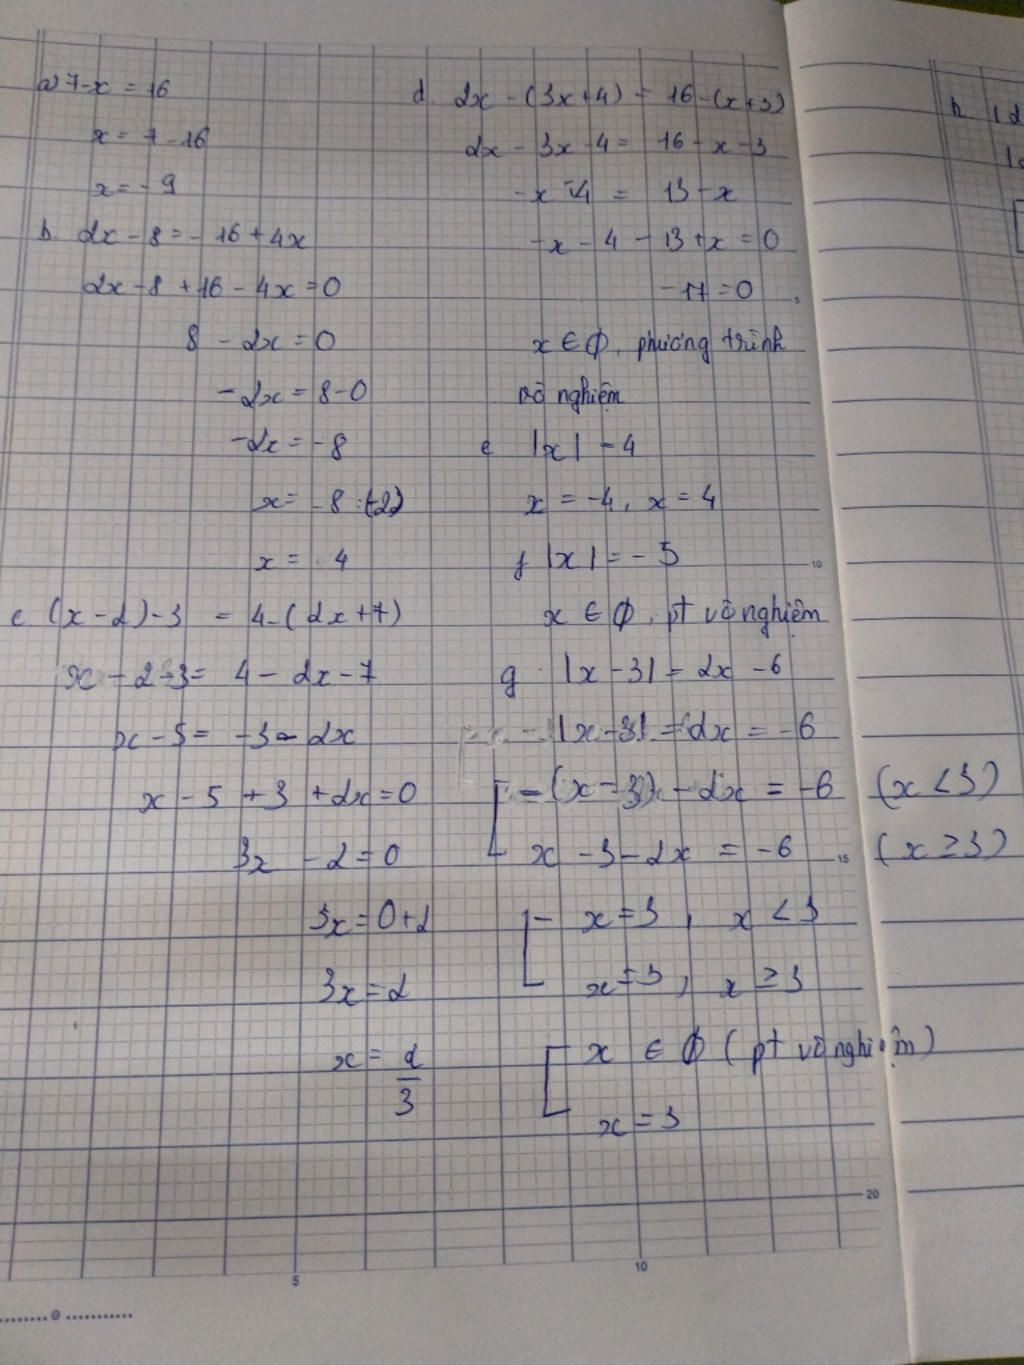 a) 7-x = 16
x = 7-16
x = -9
b. 2x - 8 = -16 + 4x
2x - 8 + 16 - 4x = 0
8 - 2x = 0
-2x = 8 - 0
-2x = -8
x = -8 : (-2)
x = 4
c. (x - 2) - 3 = 4 - (2x + 7)
x - 2 - 3 = 4 - 2x - 7
x - 5 = -3 - 2x
x - 5 + 3 + 2x = 0
3x - 2 = 0
3x = 0 + 2
3x = 2
x = 2/3
d. 2x - (3x + 4) = 16 - (x + 3)
2x - 3x - 4 = 16 - x - 3
-x - 4 = 13 - x
-x - 4 - 13 + x = 0
-17 = 0
x ∈ ∅, phương trình
vô nghiệm
e |x| = 4
x = -4, x = 4
f |x| = -5
x ∈ ∅, pt vô nghiệm
g. |x - 3| = 2x - 6
|x - 3| - 2x = -6
-(x - 3) - 2x = -6 (x < 3)
x - 3 - 2x = -6 (x ≥ 3)
x = 3, x < 3
x = 3, x ≥ 3
x ∈ ∅ (pt vô nghiệm)
x = 3
5
10
10
15
20
h.